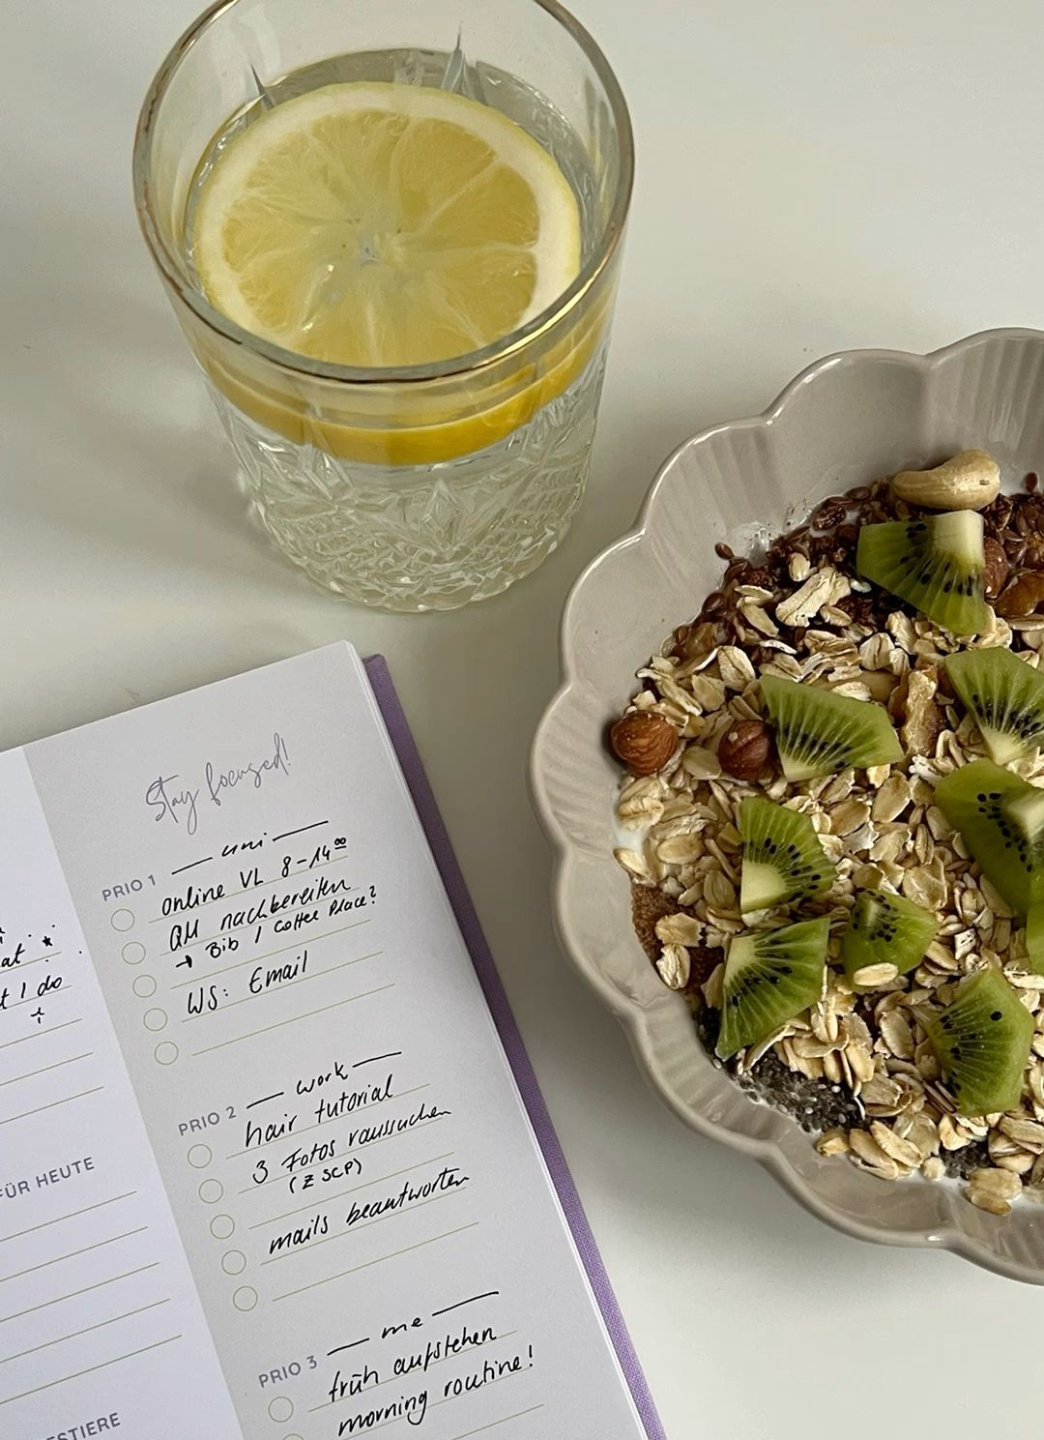 at
t I do
ÜR HEUTE
ESTIERE
Stay focused!
PRIO 1 — uni —
online VL 8-14⁰⁰
QM nachbereiten
→ Bib / Coffee Place?
WS: Email
PRIO 2 — work —
hair tutorial
3 Fotos raussuchen
(Z SCP)
mails beantworten
PRIO 3 — me —
früh aufstehen
morning routine!